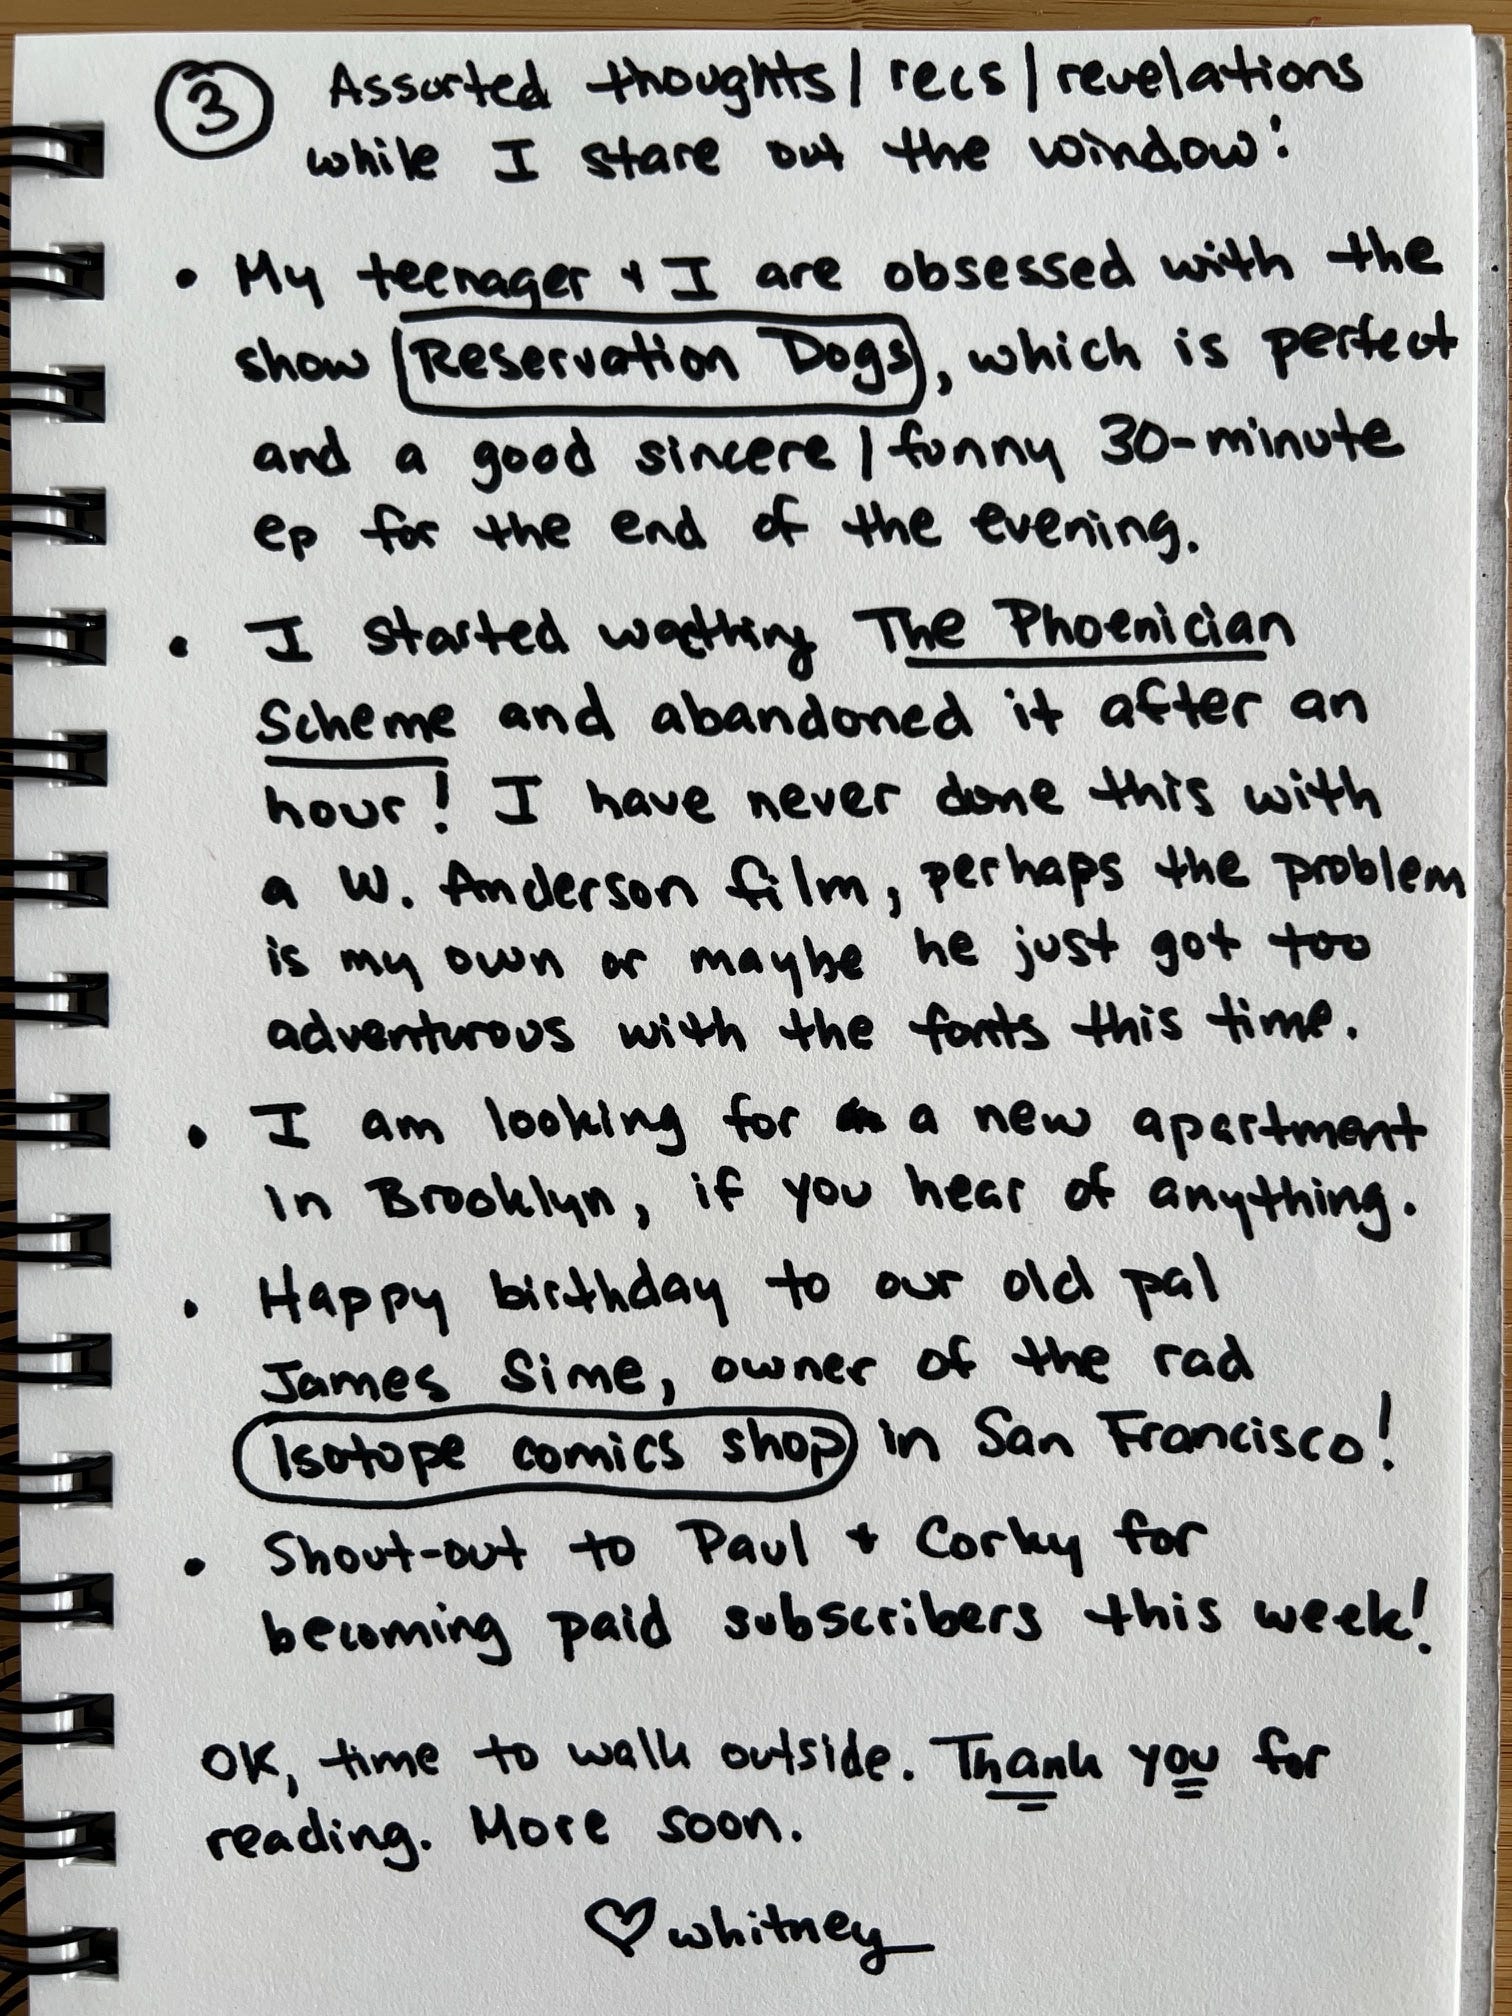 ③ Assorted thoughts/recs/revelations
while I stare out the window:
• My teenager + I are obsessed with the
show Reservation Dogs, which is perfect
and a good sincere/funny 30-minute
ep for the end of the evening.
• I started watching The Phoenician
Scheme and abandoned it after an
hour! I have never done this with
a W. Anderson film, perhaps the problem
is my own or maybe he just got too
adventurous with the fonts this time.
• I am looking for a new apartment
in Brooklyn, if you hear of anything.
• Happy birthday to our old pal
James Sime, owner of the rad
Isotope comics shop in San Francisco!
• Shout-out to Paul + Corky for
becoming paid subscribers this week!
OK, time to walk outside. Thank you for
reading. More soon.
♡ whitney